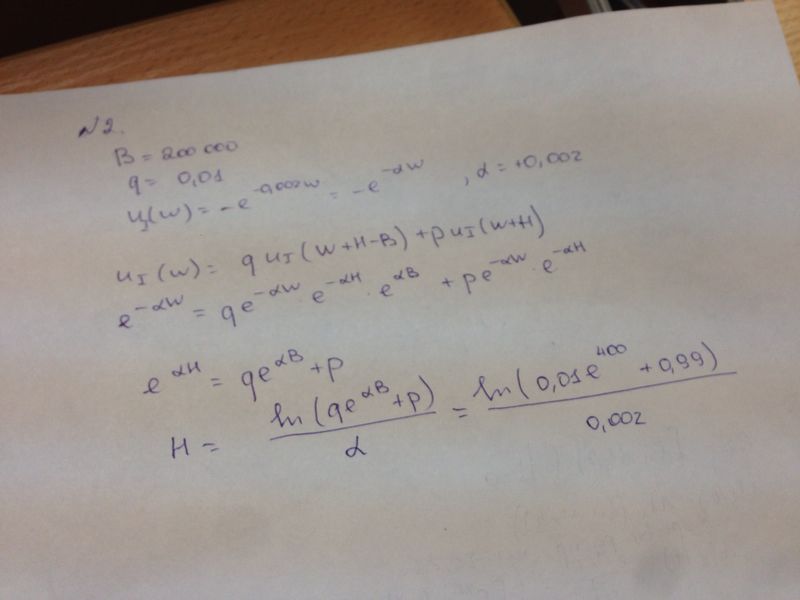 №2.
B = 200 000
q = 0,01
u_I(w) = -e^{-0,002w} = -e^{-αw}, α = +0,002
u_I(w) = q u_I(w+H-B) + p u_I(w+H)
e^{-αw} = q e^{-αw} · e^{-αH} · e^{αB} + p e^{-αw} · e^{-αH}
e^{αH} = q e^{αB} + p
H = ln(q e^{αB} + p) / α = ln(0,01 e^{400} + 0,99) / 0,002